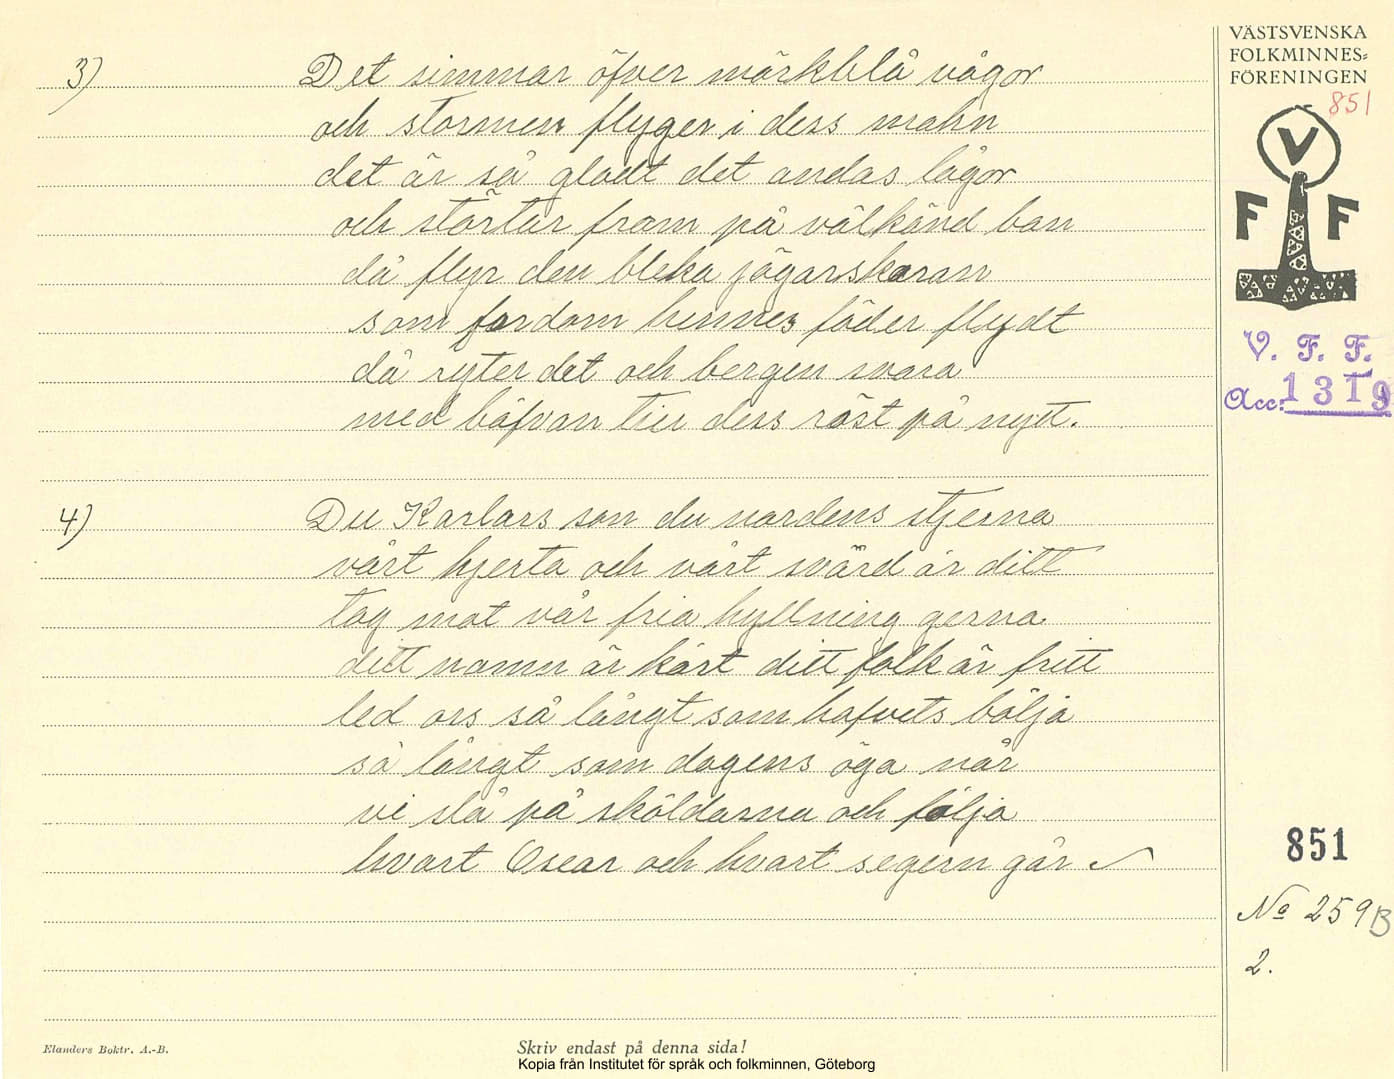 VÄSTSVENSKA
FOLKMINNES=
FÖRENINGEN
851
V
F F
V. F. F.
Acc: 1319
3) Det simmar öfver mörkblå vågor
och stormen flyger i dess mahn
det är så gladt det andas lågor
och störtar fram på välkänd ban
då flyr den bleka jägarskaran
som fordom hennes fäder flydt
då ryter det och bergen svara
med bäfvan till dess röst på nytt.
4) Du Karlars son du nordens stjerna
vårt hjerta och vårt svärd är ditt
tag mot vår fria hyllning gerna
ditt namn är kärt ditt folk är fritt
led oss så långt som hafvets bölja
så långt som dagens öga når
vi slå på sköldarna och följa
hvart Oscar och hvart segern går
851
No 259B
2.
Elanders Boktr. A.-B.
Skriv endast på denna sida!
Kopia från Institutet för språk och folkminnen, Göteborg